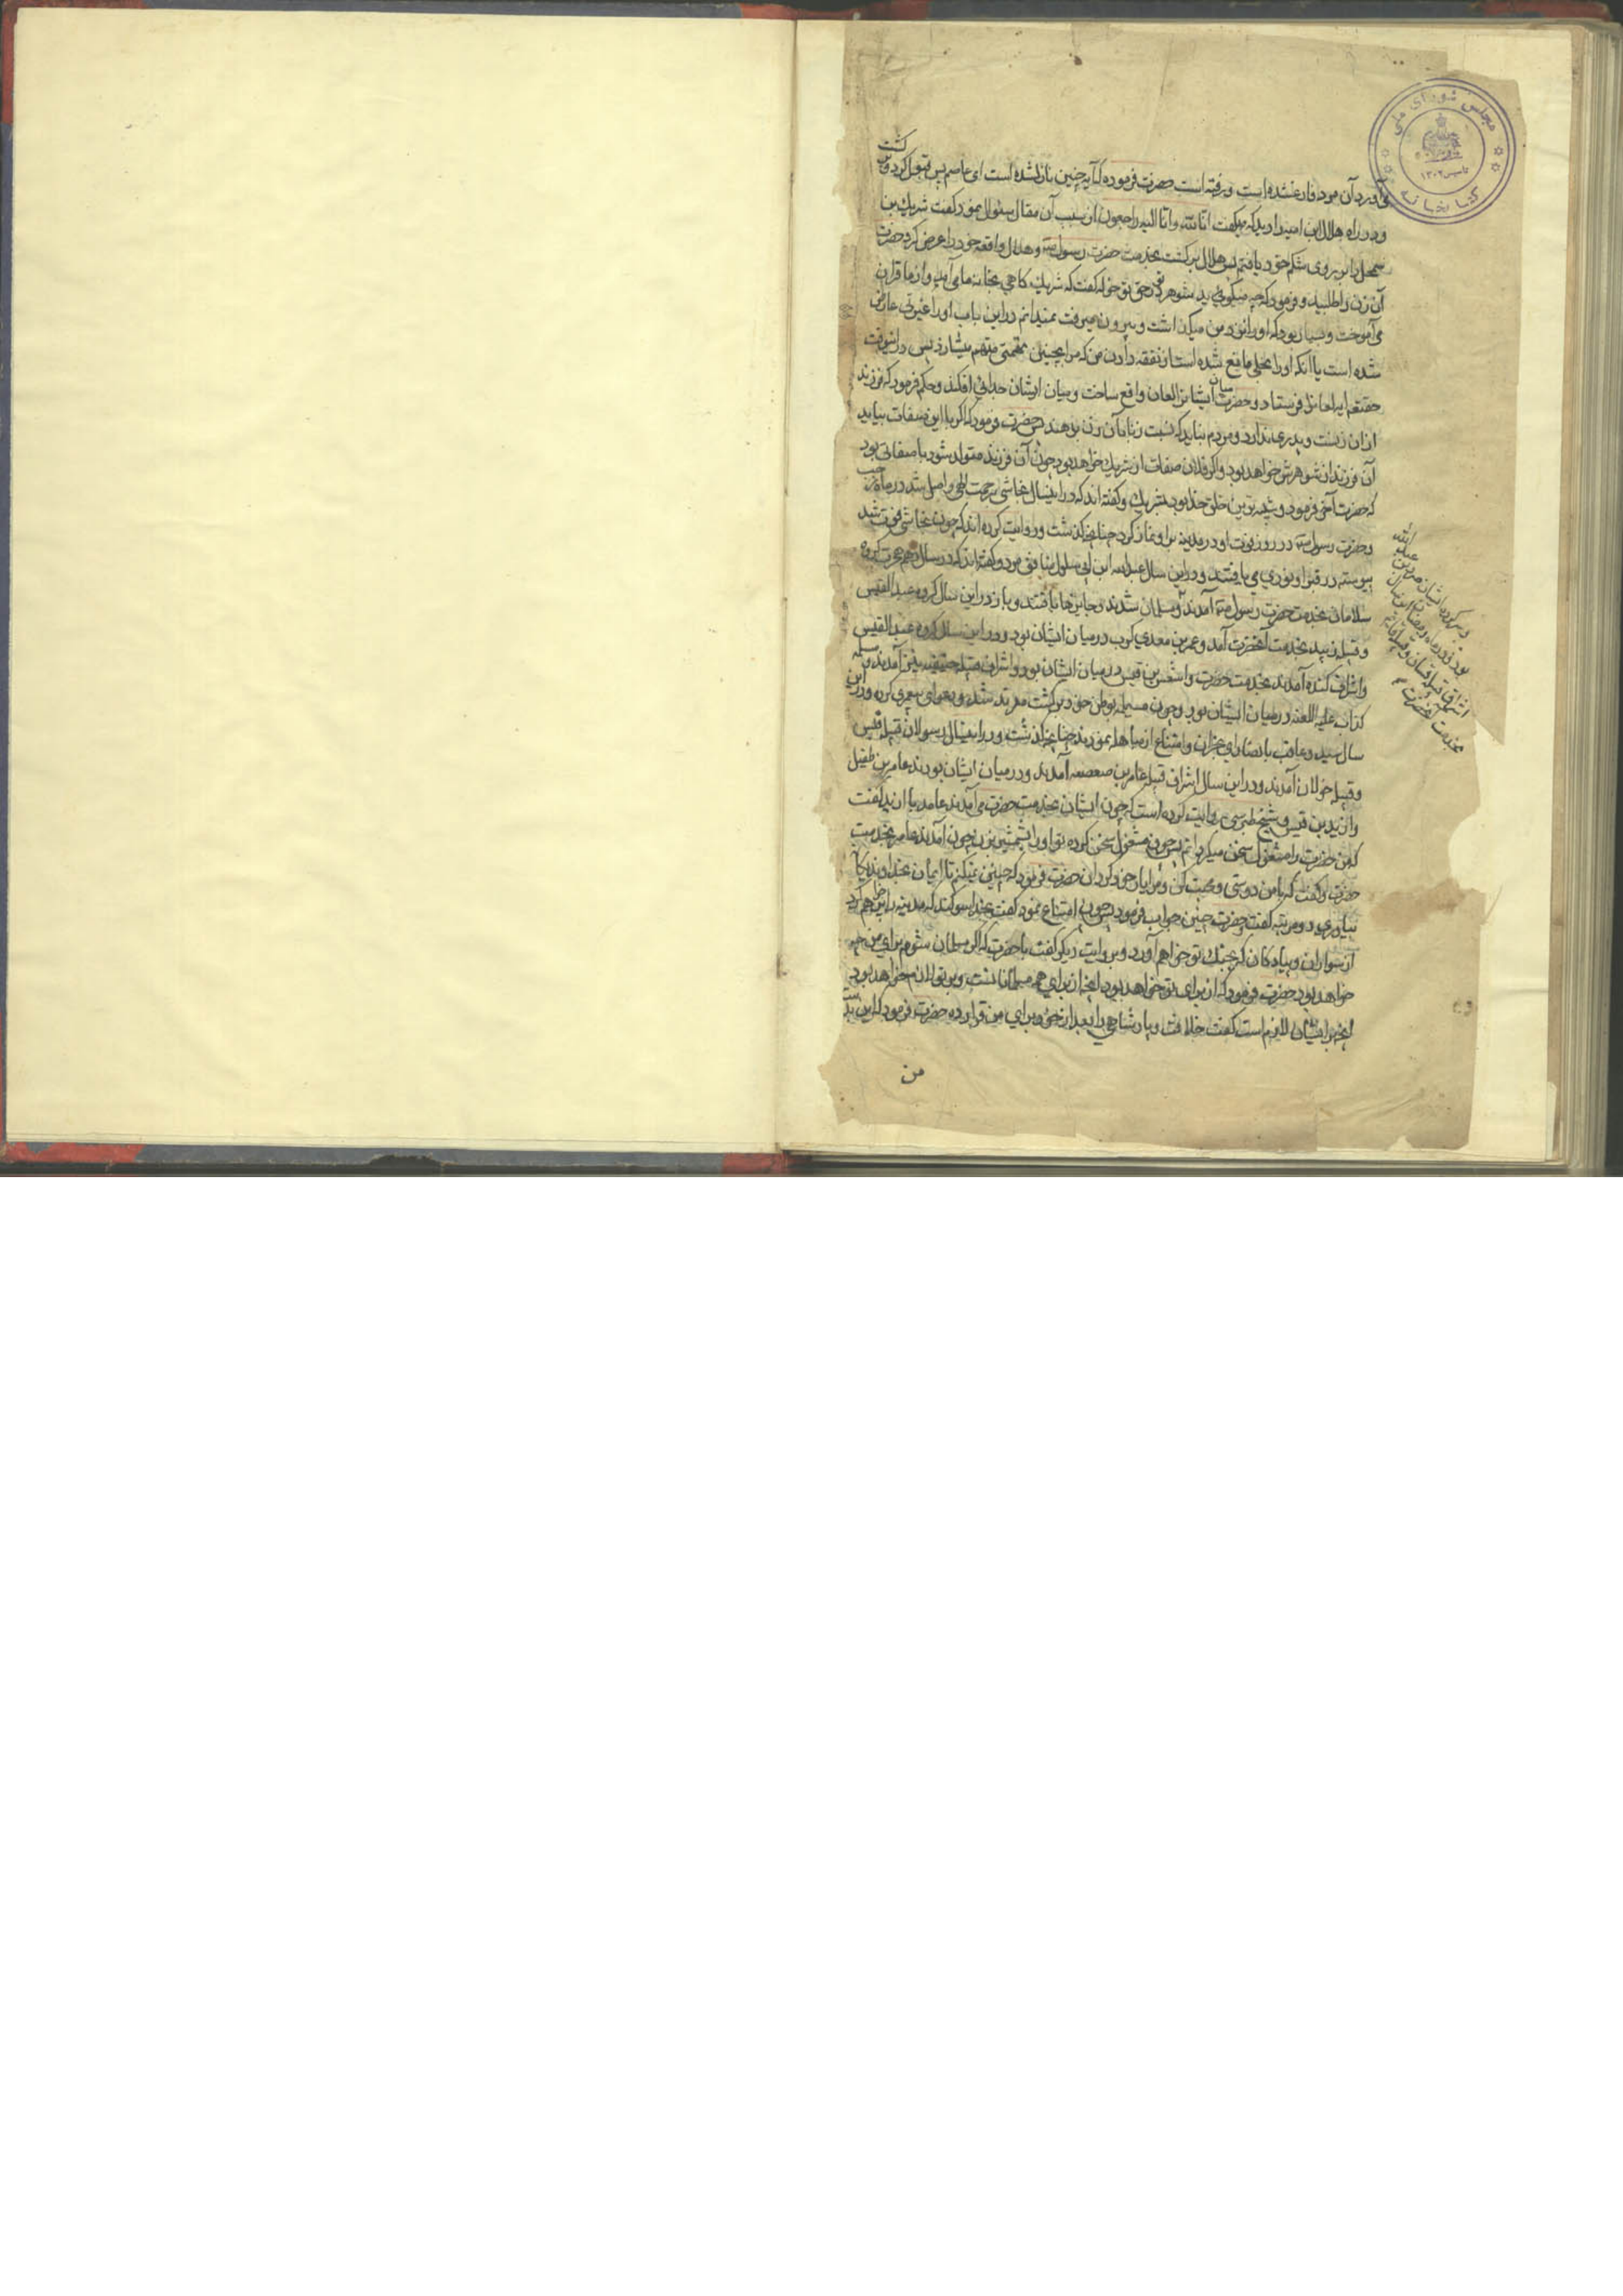 مجلس شورای ملی
تاسیس ۱۳۰۲
کتابخانه
می آورد آن مرد فارغ شده است و رفته است حضرت فرموده که آیه چنین نازل شده است ای عاصم پس قبول کرد و بر گشت
و در راه هلال ابن امیه را دید که میگفت انا لله و انا الیه راجعون از سبب آن مقال سئوال نمود گفت شریک بن
سمحا را بر روی شکم خود یافتم پس هلال برگشت بخدمت حضرت رسول و هلال واقعه خود را عرض کرد حضرت
آن زن را طلبید و فرمود که چه میگوید شوهر تو در حق تو خوله گفت که شریک گاهی بخانه ما می آمد و از ما قران
می آموخت و بسیار بود که او را نزد من میگذاشت و بیرون میرفت نمیدانم در این باب او را غیرتی عارض
شده است یا آنکه او را بخلی مانع شده است از نفقه دادن من که مرا بچنین تهمتی متهم میسازد پس در انوقت
حقتعالی ایه لعان را فرستاد و حضرت میان ایشان لعان واقع ساخت و میان ایشان جدائی افکند و حکم فرمود که فرزند
از ان زنست و پدری ندارد و مردم نباید که نسبت زنا بآن زن بدهند پس حضرت فرمود که اگر با این صفات بیاید
آن فرزند از شوهرش خواهد بود و اگر فلان صفات از شریک خواهد بود چون آن فرزند متولد شود با صفاتی بود
که حضرت آخر فرمود و شبیه ترین خلق خدا بود بشریک و گفته اند که در اینسال نجاشی برحمت الهی واصل شد در ماه رجب
و حضرت رسول در روز فوت او در مدینه بر او نماز کرد چنانچه گذشت و روایت کرده اند که چون نجاشی فوت شد
پیوسته در قبر او نوری می یافتند و در این سال عبد الله ابن ابی سلول منافق مرد و گفته اند که در سال دهم هجرت گروه
سلامان بخدمت حضرت رسول آمدند و مسلمان شدند و جایزها یافتند و باز در این سال گروه عبد القیس
و قبیله زبید بخدمت آنحضرت آمد و عمر بن معدی کرب در میان ایشان بود و در این سال گروه عبد القیس
و اشراف کنده آمدند بخدمت حضرت و اشعث بن قیس در میان ایشان بود و اشراف قبیله حنیفه نیز آمدند و مسیلمه
کذاب علیه اللعنه در میان ایشان بود و چون مسیلمه بوطن خود برگشت مرتد شد و دعوای پیغمبری کرد و در این
سال سید و عاقب با نصارای نجران و امتناع از مباهله نمودند چنانچه گذشت و در اینسال رسولان قبیله قیس
و قبیله خولان آمدند و در این سال اشراف قبیله عامر بن صعصعه آمدند و در میان ایشان بودند عامر بن طفیل
و ازید بن قیس و شیخ طبرسی روایت کرده است که چون ایشان بخدمت حضرت می آمدند عامر با ازید گفت
که من حضرت را مشغول سخن میگردانم پس چون مشغول سخن کرده تو او را بشمشیر بزن چون آمدند عامر بخدمت
حضرت گفت که با من دوستی و محبت کن و مرا یار خود گردان حضرت فرمود که چنین نمیکنم تا ایمان بخداوند یکتا
بیاوری دو مرتبه گفت و حضرت چنین جواب فرمود پس چون امتناع نمود گفت بخدا سوگند که مدینه را پر خواهم کرد
از سواران و پیادگان که بجنگ تو خواهم آورد و بروایت دیگر گفت با حضرت که اگر مسلمان شوم برای من چه
خواهد بود حضرت فرمود که از برای تو خواهد بود آنچه از برای همه مسلمانانست و بر تو لازم خواهد بود
آنچه بر ایشان لازم است گفت خلافت و پادشاهی را بعد از خود برای من قرار ده حضرت فرمود که این بدست
من
و سرکرده ایشان صرد بن عبد الله
بود و در ماه رمضان این سال
اشراف قبیله غسان و قبیله غامد
بخدمت آنحضرت